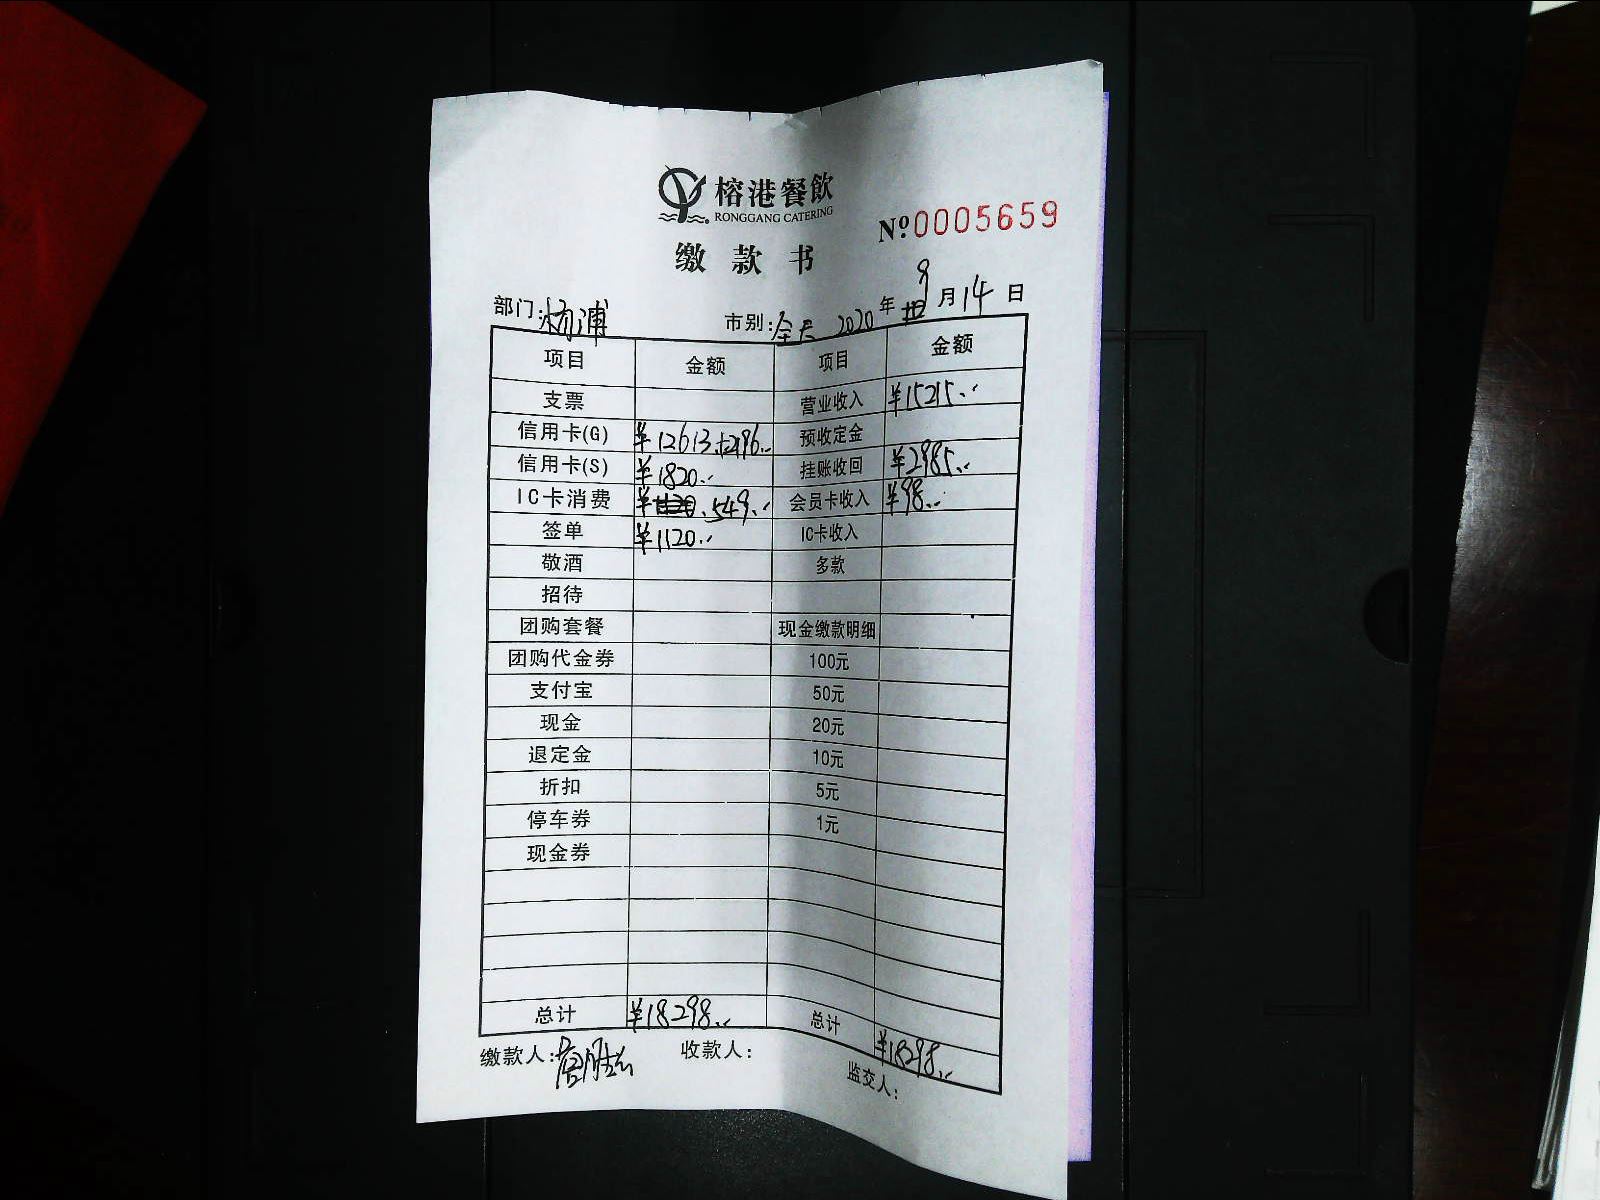 榕港餐飲
RONGGANG CATERING
缴款书
№0005659
部门:杨浦 市别:全天 2020年9月14日
项目 金额 项目 金额
支票 营业收入 ¥15215.-
信用卡(G) ¥12613.+2196.- 预收定金
信用卡(S) ¥1820.- 挂账收回 ¥2985.-
IC卡消费 ¥549.- 会员卡收入 ¥98.-
签单 ¥1120.- IC卡收入
敬酒 多款
招待
团购套餐 现金缴款明细
团购代金券 100元
支付宝 50元
现金 20元
退定金 10元
折扣 5元
停车券 1元
现金券
总计 ¥18298.- 总计 ¥18298.-
缴款人: 收款人: 监交人: